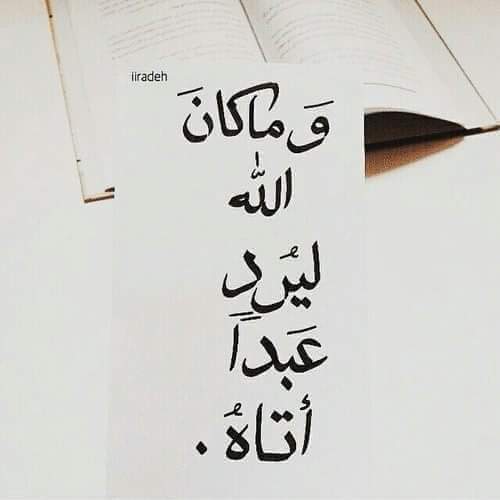 iiradeh
وَ ماكانَ
الله
ليُرد
عَبداً
أتاهُ .